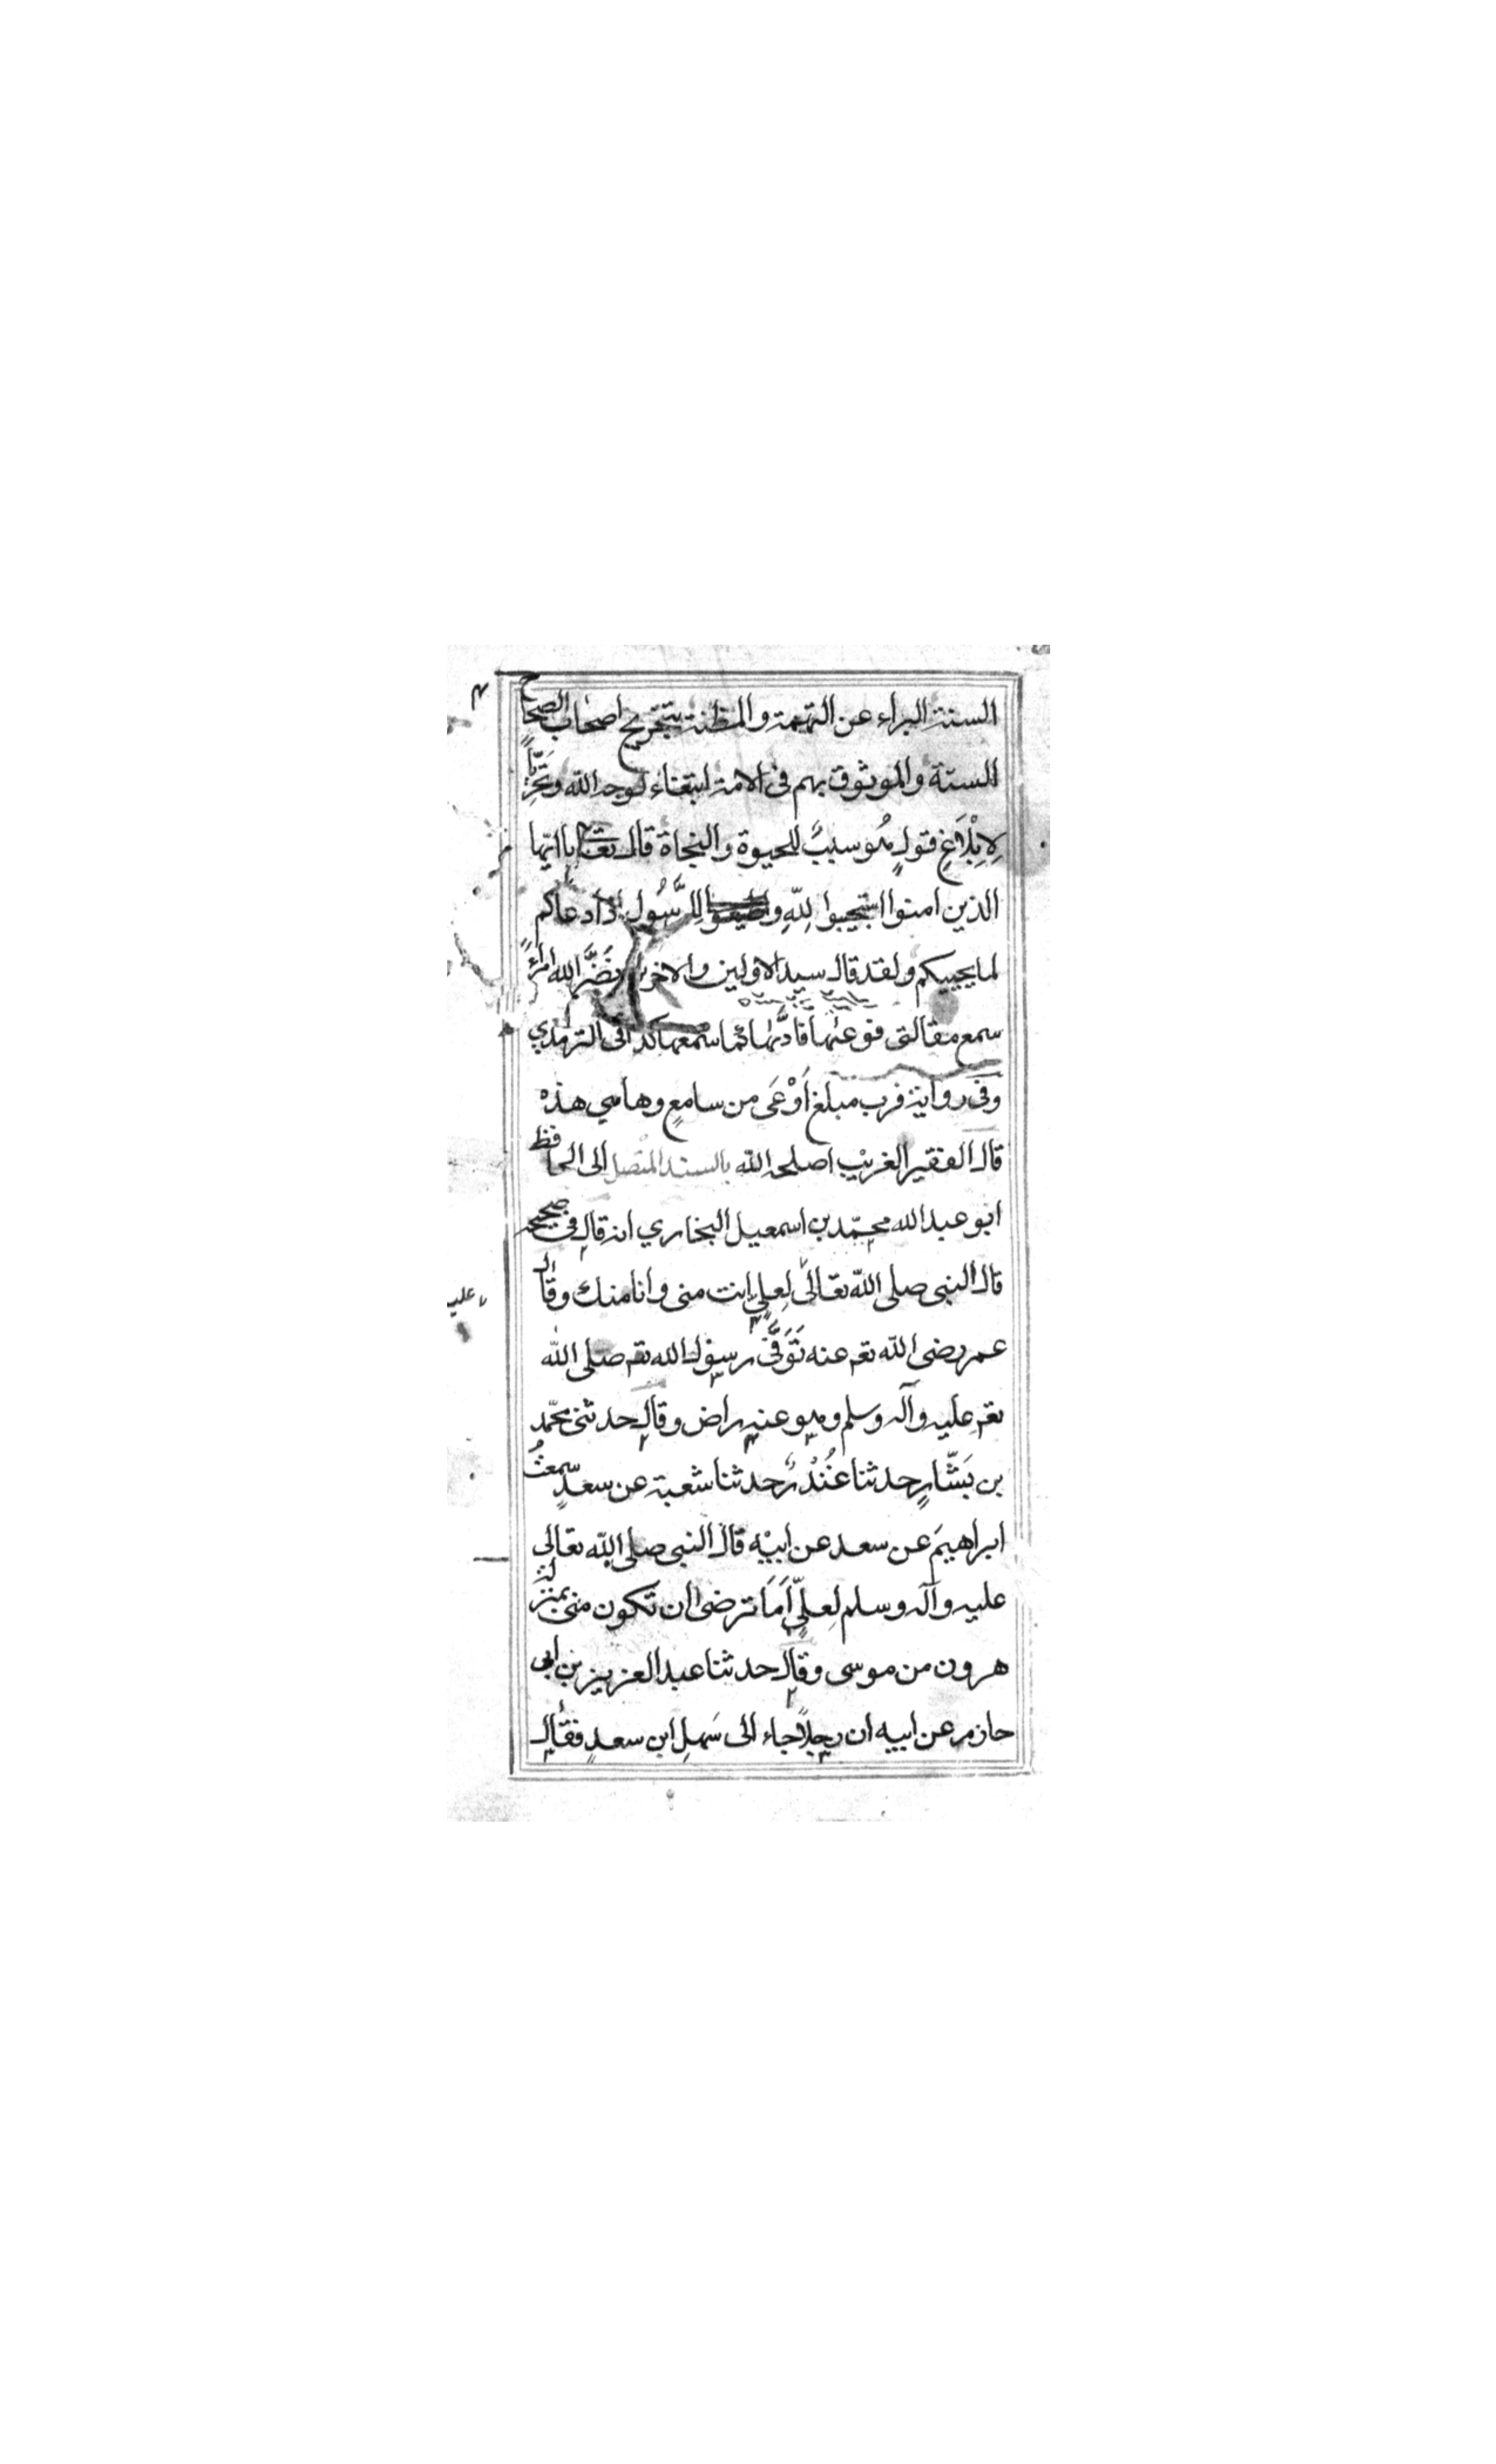 السنة البراء عن التهمة والمظنة بتخريج اصحاب الصحاح
الستة والموثوق بهم فى الامة ابتغاء لوجه الله وتحريًّا
لِاِبْلَاغِ قولٍ هُو سببٌ للحيوة والنجاة قال تعالى يا ايها
الذين امنوا استجيبوا لِلّهِ وللرَّسُول اذا دعاكم
لما يحييكم ولقد قال سيد الاولين والاخرين نَضَّرَ الله امراءً
سمع مقالتى فوعىٰها فادّىٰها كما سمعها كذا فى الترمذي
وفى رواية فرب مبلغ أَوْعَى من سامعٍ وها هي هذه
قال الفقير الغريب اصلحه الله بالسند المتصل الى الحافظ
ابو عبد الله محمّد بن اسمعيل البخاري انه قال فى صحيحه
قال النبى صلى الله تعالىٰ لِعلىٍّ انت منى وانا منك وقال
عليه
عمر رضى الله تعم عنه تَوَفَّىٰ رسول الله تعم صلى الله
تعم عليه وآله وسلم وهو عنه راض وقال حدثنى محمّد
بن بَشّارٍ حدثنا غُنْدُرٌ حدثنا شعبة عن سعدٍ سمعتُ
ابراهيمَ عن سعد عن ابيْه قال النبى صلى الله تعالى
عليه وآله وسلم لِعلىٍّ أَمَا ترضى ان تكون منى بمنزلة
هرون من موسى وقال حدثنا عبد العزيز بن ابى
حازم عن ابيه ان رجلًا جاء الى سَهلِ ابن سعدٍ فقال